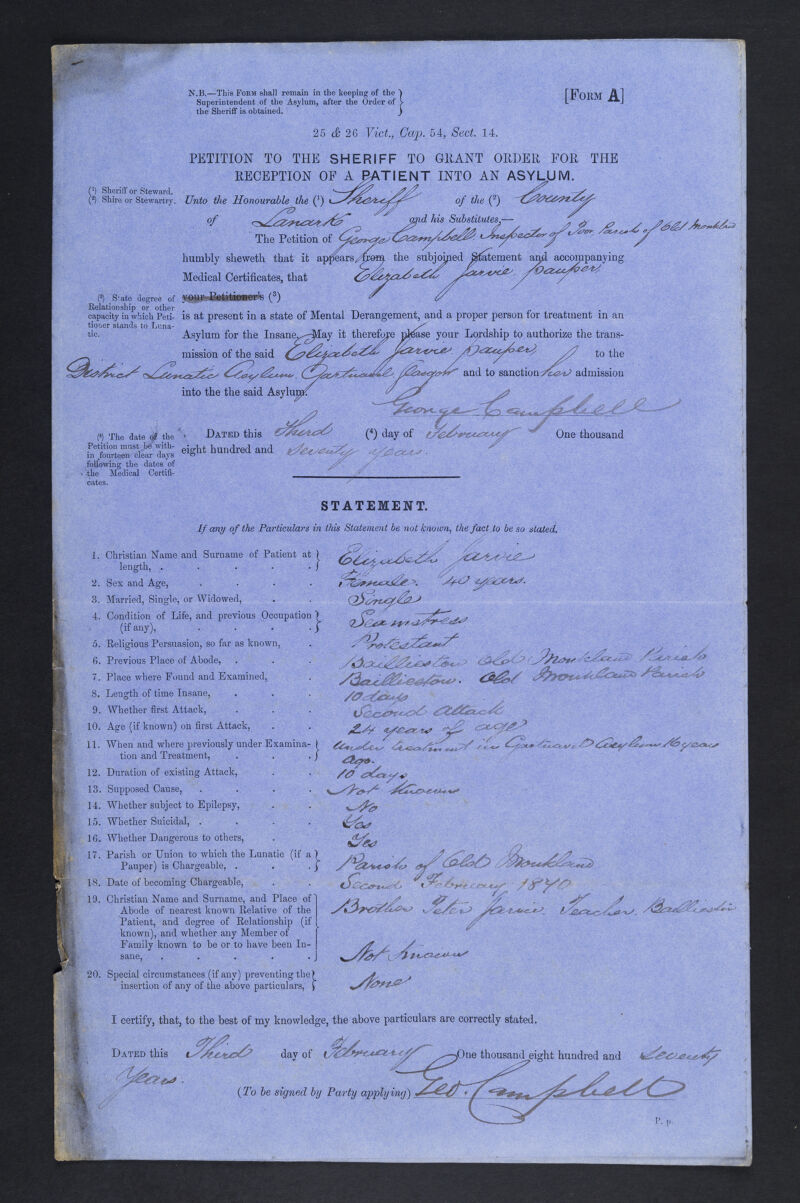 N.B.—This Form shall remain in the keeping of the
Superintendent of the Asylum, after the Order of
the Sheriff is obtained.
[Form A]
25 & 26 Vict., Cap. 54, Sect. 14.
PETITION TO THE SHERIFF TO GRANT ORDER FOR THE
RECEPTION OF A PATIENT INTO AN ASYLUM.
(1) Sheriff or Steward.
(2) Shire or Stewartry.
Unto the Honourable the (1) Sheriff of the (2) County
of Lanark and his Substitutes,—
The Petition of George Campbell Inspector of Poor Parish of Old Monkland
humbly sheweth that it appears from the subjoined Statement and accompanying
Medical Certificates, that Elizabeth Jarvie, pauper,
(3) State degree of
Relationship or other
capacity in which Peti-
tioner stands to Luna-
tic.
your Petitioner's (3)
is at present in a state of Mental Derangement, and a proper person for treatment in an
Asylum for the Insane. May it therefore please your Lordship to authorize the trans-
mission of the said Elizabeth Jarvie, pauper, to the
District Lunatic Asylum, Gartnavel Glasgow and to sanction her admission
into the the said Asylum.
George Campbell
(4) The date of the
Petition must be with-
in fourteen clear days
following the dates of
the Medical Certifi-
cates.
Dated this Third (4) day of February One thousand
eight hundred and seventy years.
STATEMENT.
If any of the Particulars in this Statement be not known, the fact to be so stated.
1. Christian Name and Surname of Patient at
length, . . . . . Elizabeth Jarvie
2. Sex and Age, . . . . Female. 40 years.
3. Married, Single, or Widowed, . . Single
4. Condition of Life, and previous Occupation
(if any), . . . . Seamstress
5. Religious Persuasion, so far as known, . Protestant
6. Previous Place of Abode, . . . Baillieston Old Monkland Parish
7. Place where Found and Examined, . Baillieston. Old Monkland Parish
8. Length of time Insane, . . . 10 days
9. Whether first Attack, . . . Second Attack
10. Age (if known) on first Attack, . . 24 years of age
11. When and where previously under Examina-
tion and Treatment, . . . under treatment in Gartnavel Asylum 16 years
ago.
12. Duration of existing Attack, . . 10 days
13. Supposed Cause, . . . . Not Known
14. Whether subject to Epilepsy, . . No
15. Whether Suicidal, . . . . Yes
16. Whether Dangerous to others, . Yes
17. Parish or Union to which the Lunatic (if a
Pauper) is Chargeable, . . . Parish of Old Monkland
18. Date of becoming Chargeable, . . Second February 1870
19. Christian Name and Surname, and Place of
Abode of nearest known Relative of the
Patient, and degree of Relationship (if
known), and whether any Member of
Family known to be or to have been In-
sane, . . . . .
Brother Peter Jarvie. Teacher. Baillieston
Not Known
20. Special circumstances (if any) preventing the
insertion of any of the above particulars, None
I certify, that, to the best of my knowledge, the above particulars are correctly stated.
Dated this Third day of February One thousand eight hundred and seventy
years.
(To be signed by Party applying) Geo. Campbell
P. p.